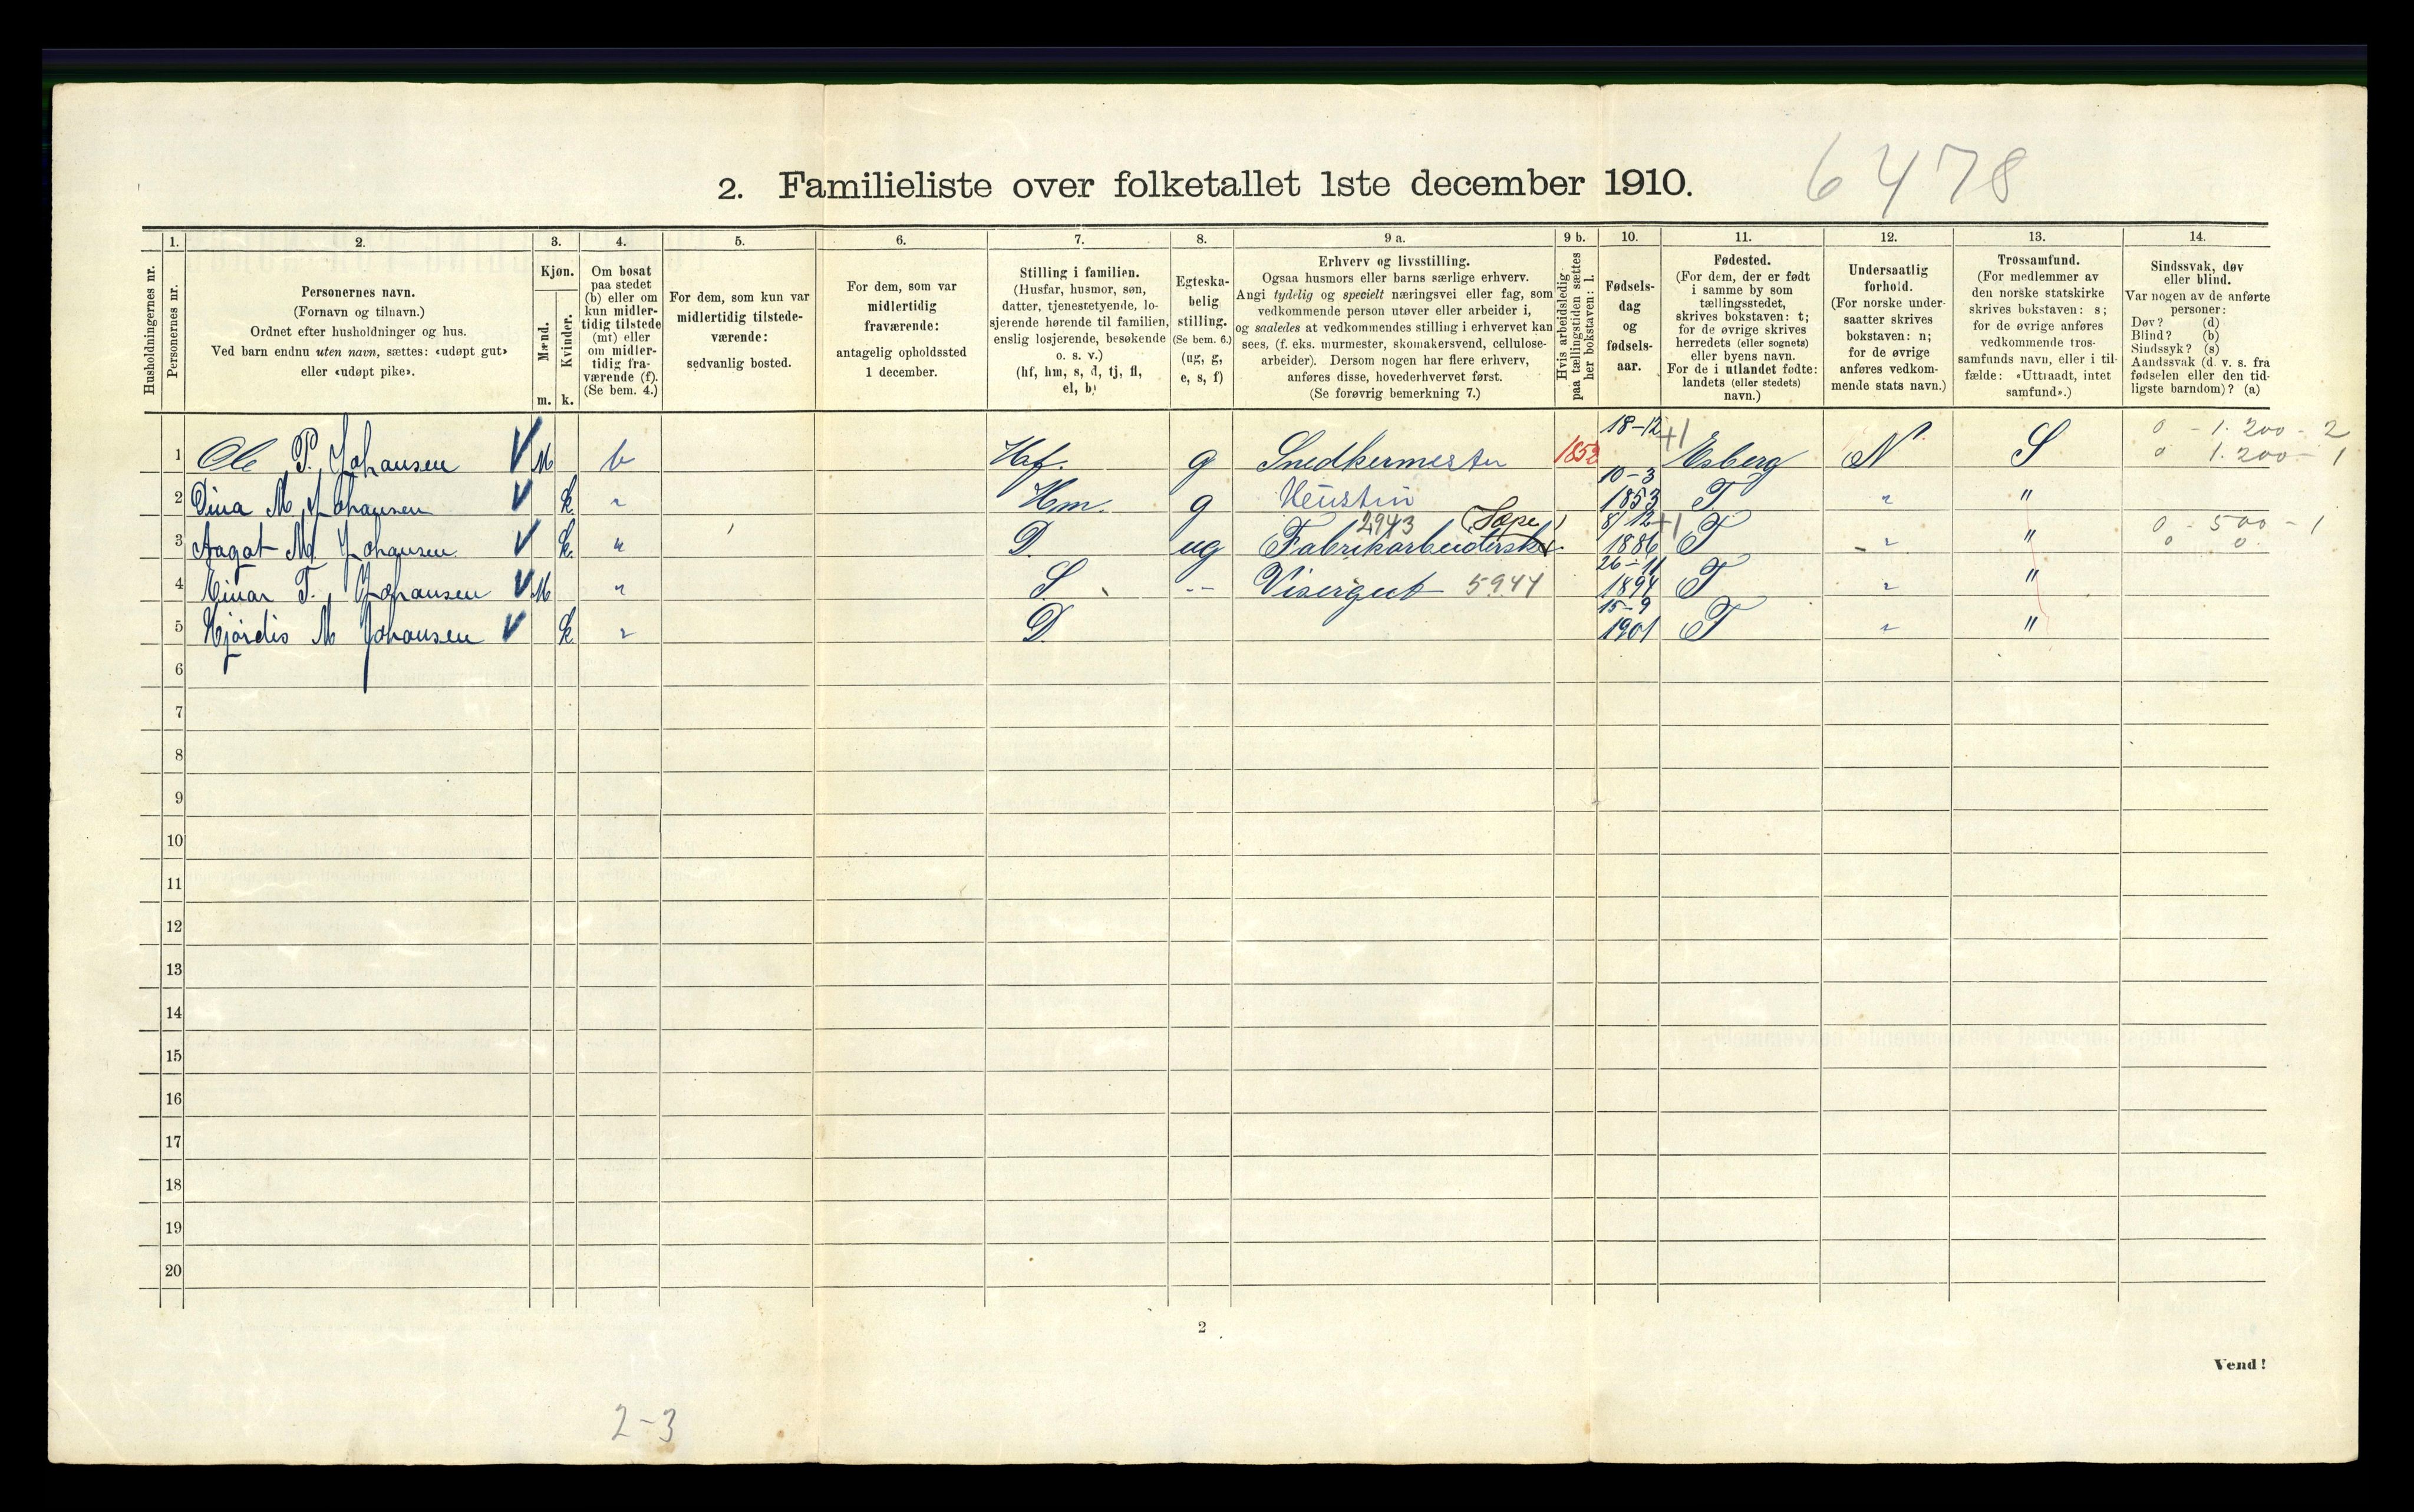 6478
2. Familieliste over folketallet 1ste december 1910.
Husholdningernes nr.
1.
Personernes nr.
2.
Personernes navn.
(Fornavn og tilnavn.)
Ordnet efter husholdninger og hus.
Ved barn endnu uten navn, sættes: «udøpt gut»
eller «udøpt pike».
3.
Kjøn.
Mænd.
Kvinder.
m. k.
4.
Om bosat
paa stedet
(b) eller om
kun midler-
tidig tilstede
(mt) eller
om midler-
tidig fra-
værende (f).
(Se bem. 4.)
5.
For dem, som kun var
midlertidig tilstede-
værende:
sedvanlig bosted.
6.
For dem, som var
midlertidig
fraværende:
antagelig opholdssted
1 december.
7.
Stilling i familien.
(Husfar, husmor, søn,
datter, tjenestetyende, lo-
sjerende hørende til familien,
enslig losjerende, besøkende
o. s. v.)
(hf, hm, s, d, tj, fl,
el, b)
8.
Egteska-
belig
stilling.
(Se bem. 6.)
(ug, g,
e, s, f)
9 a.
Erhverv og livsstilling.
Ogsaa husmors eller barns særlige erhverv.
Angi tydelig og specielt næringsvei eller fag, som
vedkommende person utøver eller arbeider i,
og saaledes at vedkommendes stilling i erhvervet kan
sees, (f. eks. murmester, skomakersvend, cellulose-
arbeider). Dersom nogen har flere erhverv,
anføres disse, hovederhvervet først.
(Se forøvrig bemerkning 7.)
9 b.
Hvis arbeidsledig
paa tællingstiden sættes
her bokstaven: l.
10.
Fødsels-
dag
og
fødsels-
aar.
11.
Fødested.
(For dem, der er født
i samme by som
tællingsstedet,
skrives bokstaven: t;
for de øvrige skrives
herredets (eller sognets)
eller byens navn.
For de i utlandet fødte:
landets (eller stedets)
navn.)
12.
Undersaatlig
forhold.
(For norske under-
saatter skrives
bokstaven: n;
for de øvrige
anføres vedkom-
mende stats navn.)
13.
Trossamfund.
(For medlemmer av
den norske statskirke
skrives bokstaven: s;
for de øvrige anføres
vedkommende tros-
samfunds navn, eller i til-
fælde: «Uttraadt, intet
samfund».)
14.
Sindssvak, døv
eller blind.
Var nogen av de anførte
personer:
Døv? (d)
Blind? (b)
Sindssyk? (s)
Aandssvak (d. v. s. fra
fødselen eller den tid-
ligste barndom)? (a)
18-12 +1 0 - 1.200 - 2
1 Ole P. Johansen V M b Hf. g Snedkermester 1852 Esberg N S 0 1.200 - 1
10-3
2 Dina M Johansen V k " Hm. g 1853 T. " "
2943 (Sæpe) 8/12 +1 0 - 500 - 1
3 Aagot M Johansen V k. " D. ug Fabrikarbeiderske. 1886 T " " 0 0.
26-11
4 Einar T. Johansen V M " S. -- Visergut 5944 1894 T " "
15-9
5 Hjørdis M Johansen V k " D. 1901 T " "
6
7
8
9
10
11
12
13
14
15
16
17
18
19
20
2
Vend!
2-3